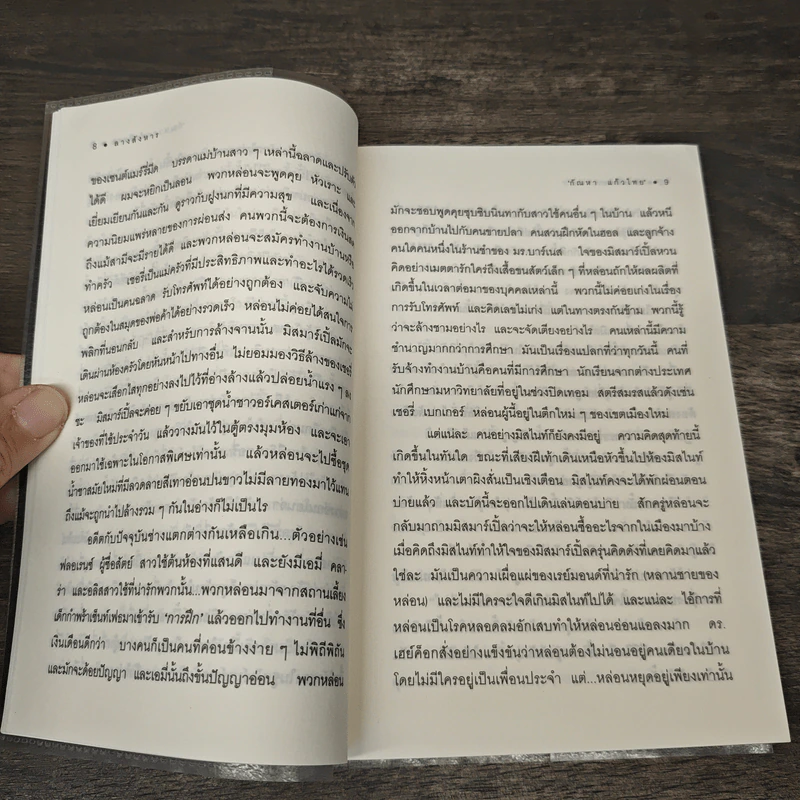 8 • ลางสังหาร
ของเซนต์แมรี่มีด บรรดาแม่บ้านสาว ๆ เหล่านี้ฉลาดและปรับตัว
ได้ดี ผมจะหยิกเป็นลอน พวกหล่อนจะพูดคุย หัวเราะ และ
เยี่ยมเยียนกันและกัน ดูราวกับฝูงนกที่มีความสุข และเนื่องจาก
ความนิยมแพร่หลายของการผ่อนส่ง คนพวกนี้จะต้องการเงินสด
ถึงแม้สามีจะมีรายได้ดี และพวกหล่อนจะสมัครทำงานบ้านหรือ
ทำครัว เชอรี่เป็นแม่ครัวที่มีประสิทธิภาพและทำอะไรได้รวดเร็ว
หล่อนเป็นคนฉลาด รับโทรศัพท์ได้อย่างถูกต้อง และจับความไม่
ถูกต้องในสมุดของพ่อค้าได้อย่างรวดเร็ว หล่อนไม่ค่อยได้สนใจการ
พลิกที่นอนกลับ และสำหรับการล้างจานนั้น มิสมาร์เปิ้ลมักจะ
เดินผ่านห้องครัวโดยหันหน้าไปทางอื่น ไม่ยอมมองวิธีล้างของเชอรี่
หล่อนจะเลือกใส่ทุกอย่างลงไปไว้ที่อ่างล้างแล้วปล่อยน้ำแรง ๆ ลง
ชะ มิสมาร์เปิ้ลจะค่อย ๆ ขยับเอาชุดน้ำชาวอร์เคสเตอร์เก่าแก่จาก
เจ้าของที่ใช้ประจำวัน แล้ววางมันไว้ในตู้ตรงมุมห้อง และจะเอา
ออกมาใช้เฉพาะในโอกาสพิเศษเท่านั้น แล้วหล่อนจะไปซื้อชุด
น้ำชาสมัยใหม่ที่มีลวดลายสีเทาอ่อนปนขาวไม่มีลายทองมาไว้แทน
ถึงแม้จะถูกนำไปล้างรวม ๆ กันในอ่างก็ไม่เป็นไร
อดีตกับปัจจุบันช่างแตกต่างกันเหลือเกิน...ตัวอย่างเช่น
ฟลอเรนซ์ ผู้ซื่อสัตย์ สาวใช้ต้นห้องที่แสนดี และยังมีเอมี่ คลา-
ร่า และอลิสสาวใช้ที่น่ารักพวกนั้น...พวกหล่อนมาจากสถานเลี้ยง
เด็กกำพร้าเซ็นท์เฟธมาเข้ารับ 'การฝึก' แล้วออกไปทำงานที่อื่น ซึ่ง
เงินเดือนดีกว่า บางคนก็เป็นคนที่ค่อนข้างง่าย ๆ ไม่พิถีพิถัน
และมักจะด้อยปัญญา และเอมี่นั้นถึงขั้นปัญญาอ่อน พวกหล่อน
'กัณหา แก้วไทย' • 9
มักจะชอบพูดคุยซุบซิบนินทากับสาวใช้คนอื่น ๆ ในบ้าน แล้วหนี
ออกจากบ้านไปกับคนขายปลา คนสวนฝึกหัดในฮอล และลูกจ้าง
คนใดคนหนึ่งในร้านชำของ มร.บาร์เนส ใจของมิสมาร์เปิ้ลหวน
คิดอย่างเมตตารักใคร่ถึงเสื้อขนสัตว์เล็ก ๆ ที่หล่อนถักให้ผลผลิตที่
เกิดขึ้นในเวลาต่อมาของบุคคลเหล่านี้ พวกนี้ไม่ค่อยเก่งในเรื่อง
การรับโทรศัพท์ และคิดเลขไม่เก่ง แต่ในทางตรงกันข้าม พวกนี้รู้
ว่าจะล้างชามอย่างไร และจะจัดเตียงอย่างไร คนเหล่านี้มีความ
ชำนาญมากกว่าการศึกษา มันเป็นเรื่องแปลกที่ว่าทุกวันนี้ คนที่
รับจ้างทำงานบ้านคือคนที่มีการศึกษา นักเรียนจากต่างประเทศ
นักศึกษามหาวิทยาลัยที่อยู่ในช่วงปิดเทอม สตรีสมรสแล้วดังเช่น
เชอรี่ เบกเกอร์ หล่อนผู้นี้อยู่ในตึกใหม่ ๆ ของเขตเมืองใหม่
แต่แน่ละ คนอย่างมิสไนท์ก็ยังคงมีอยู่ ความคิดสุดท้ายนี้
เกิดขึ้นในทันใด ขณะที่เสียงฝีเท้าเดินเหนือหัวขึ้นไปห้องมิสไนท์
ทำให้หิ้งหน้าเตาผิงสั่นเป็นเชิงเตือน มิสไนท์คงจะได้พักผ่อนตอน
บ่ายแล้ว และบัดนี้จะออกไปเดินเล่นตอนบ่าย สักครู่หล่อนจะ
กลับมาถามมิสมาร์เปิ้ลว่าจะให้หล่อนซื้ออะไรจากในเมืองมาบ้าง
เมื่อคิดถึงมิสไนท์ทำให้ใจของมิสมาร์เปิ้ลครุ่นคิดดังที่เคยคิดมาแล้ว
ใช่ละ มันเป็นความเผื่อแผ่ของเรย์มอนด์ที่น่ารัก (หลานชายของ
หล่อน) และไม่มีใครจะใจดีเกินมิสไนท์ไปได้ และแน่ละ ไอ้การที่
หล่อนเป็นโรคหลอดลมอักเสบทำให้หล่อนอ่อนแอลงมาก ดร.
เฮย์ด็อกสั่งอย่างแข็งขันว่าหล่อนต้องไม่นอนอยู่คนเดียวในบ้าน
โดยไม่มีใครอยู่เป็นเพื่อนประจำ แต่...หล่อนหยุดอยู่เพียงเท่านั้น